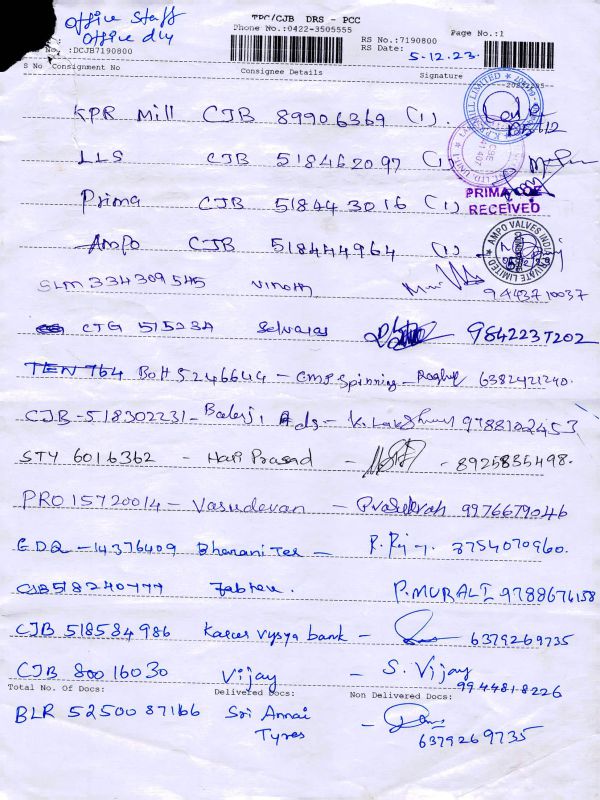 Office Staff
Office dly
TPC/CJB DRS - PCC
Phone No.:0422-3505555
RS No.:7190800
Page No.:1
No. :DCJB7190800
RS Date: 5-12-23
S No Consignment No Consignee Details Signature
KPR Mill CJB 89906369 (1).
LLS CJB 518462097 (1)
Prima CJB 518443016 (1)
RECEIVED
Ampo CJB 518444964 (1)
AMPO VALVES INDIA PRIVATE LIMITED
SLM 334309545 Vinoth 9443710037
CTG 515234 Selvaraj 9842237202
TEN 764 BOH 5246644 - CMS Spinning - Raghul 6382421240.
CJB - 518302231 - Balaji Ads - K. Lakshmi 9788102453
STY 6016362 - Hari Prasad - 8925835498.
PRO 15720014 - Vasudevan - 9976679046
EDQ - 14376409 Bhavani Tex - 3754070960.
CJB 518240777 P. MURALI 9788676158
CJB 518584986 Karur Vysya bank - 6379269735
CJB 80016030 Vijay - S. Vijay
9944818226
Total No. Of Docs: Delivered Docs: Non Delivered Docs:
BLR 52500 87166 Sri Annai
Tyres
6379269735